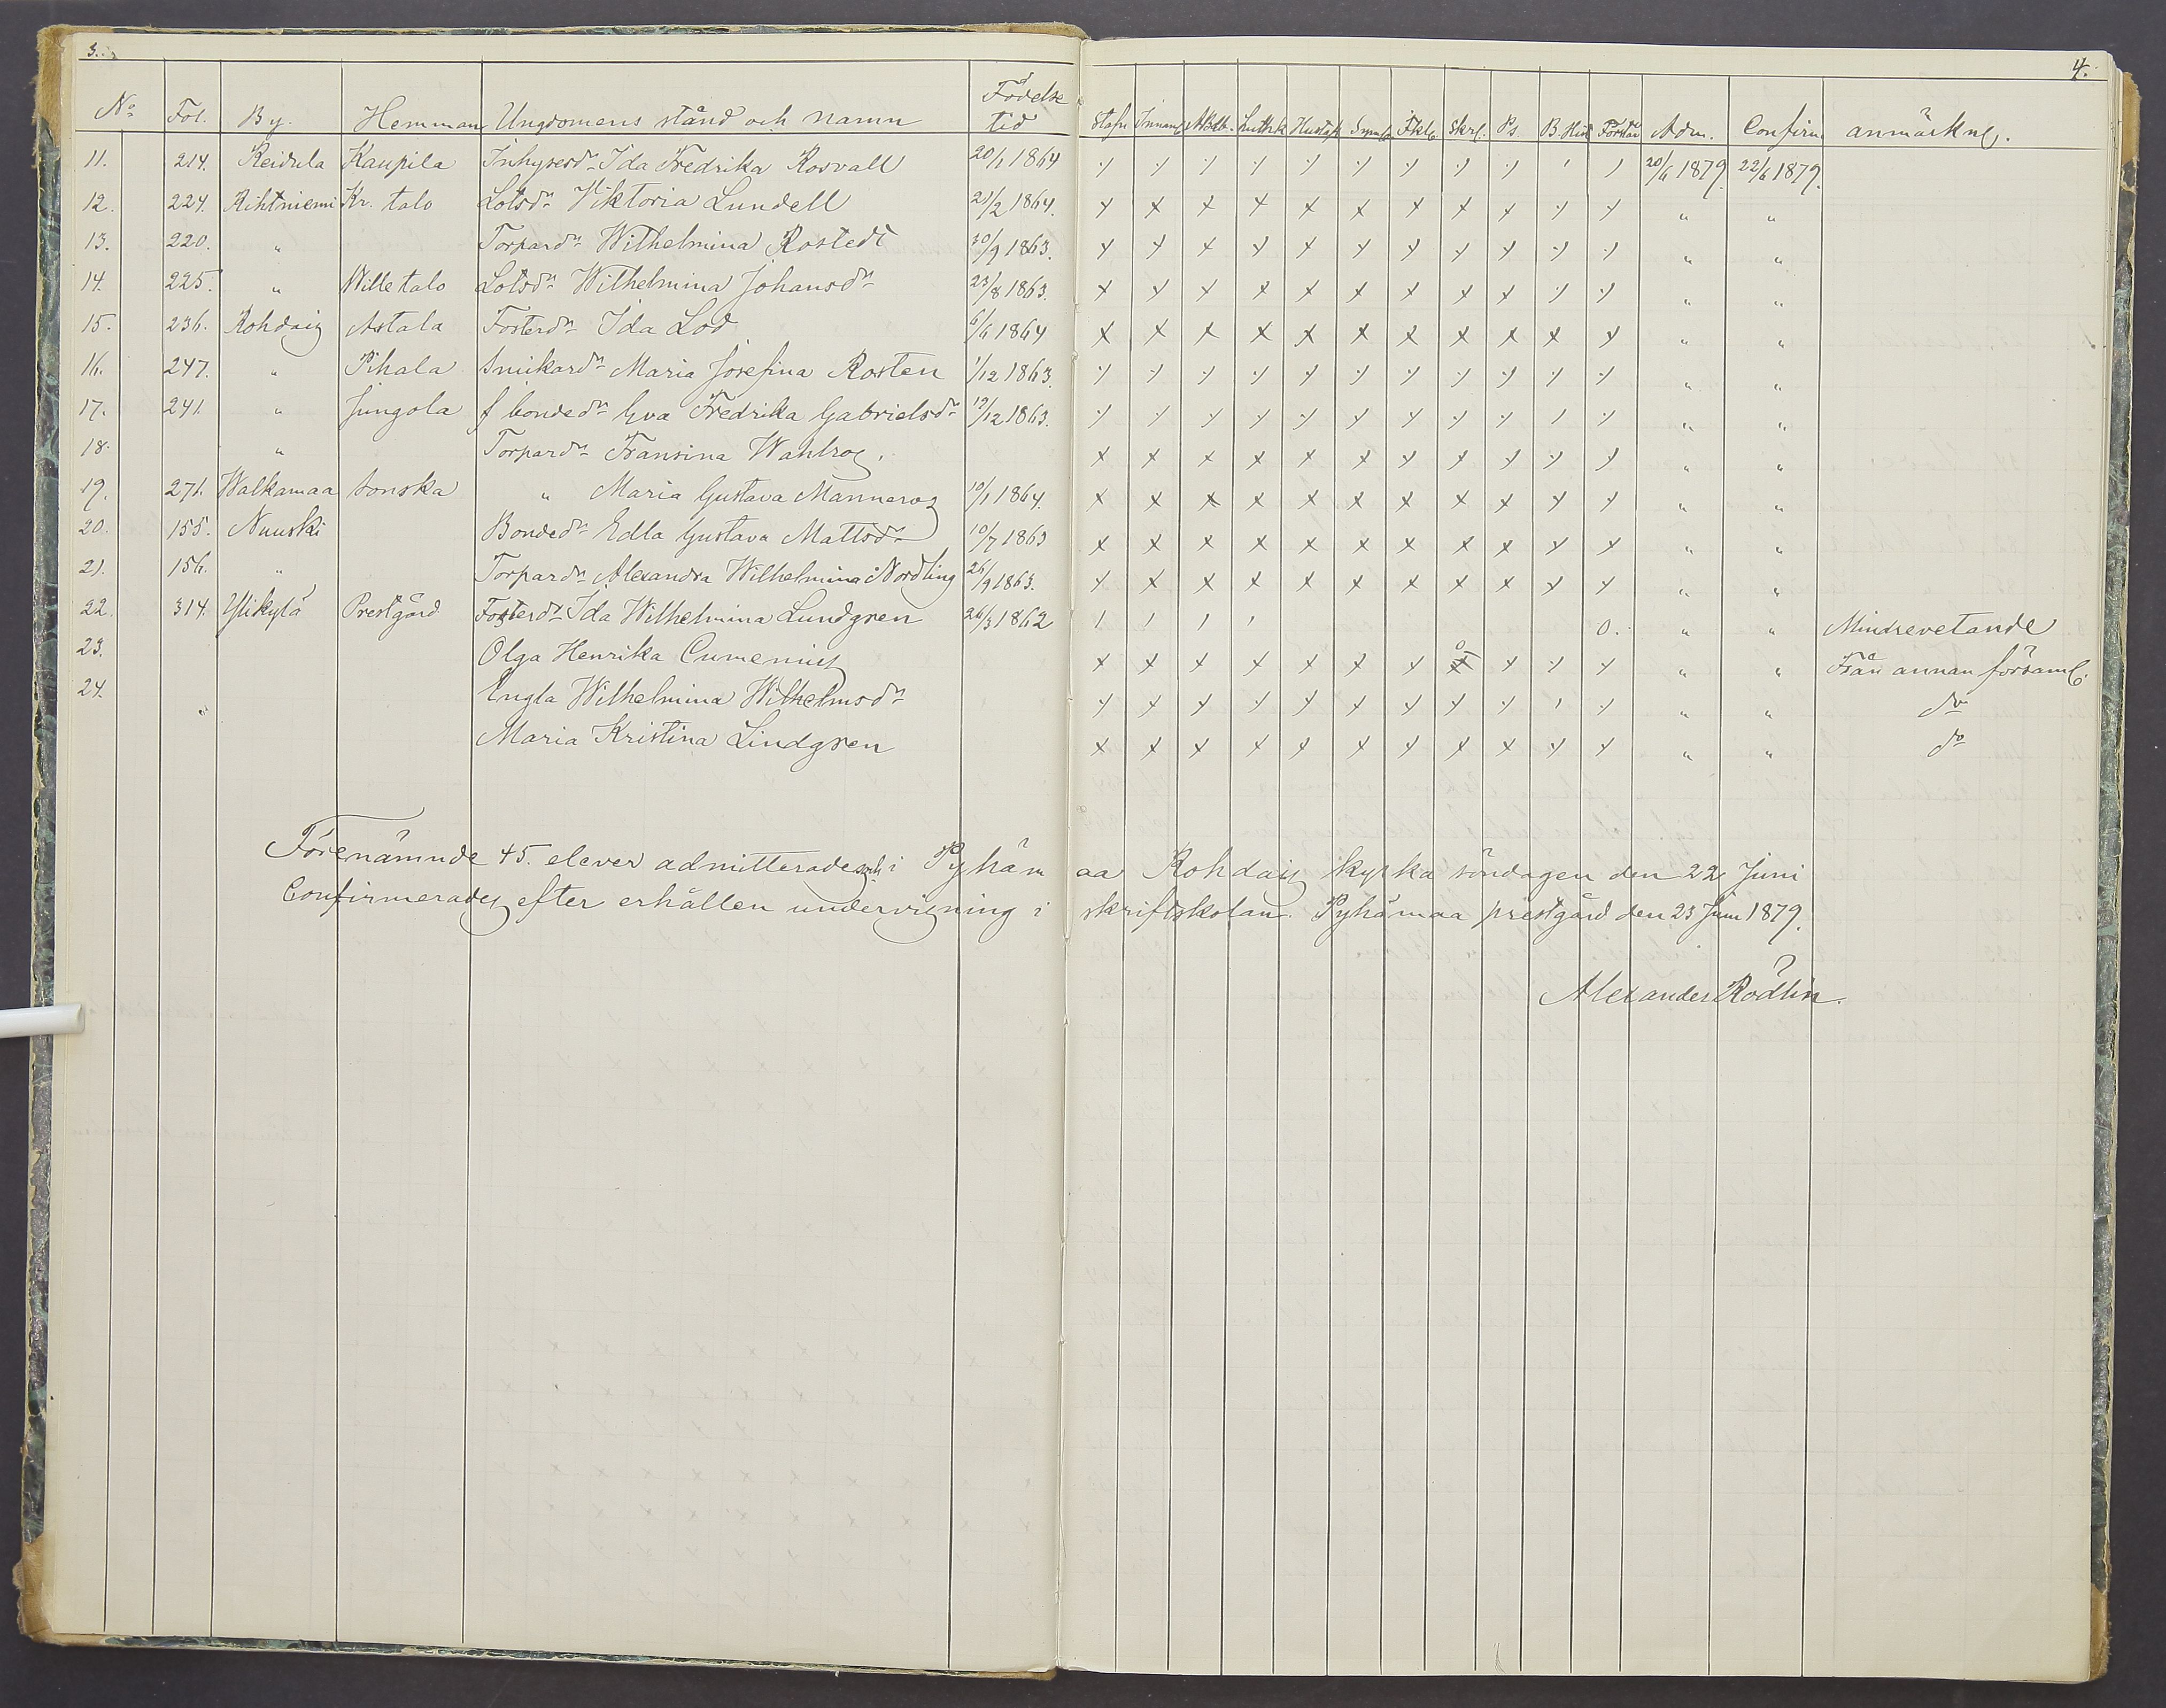 3.
4.
No Fol. By. Hemman Ungdomens stånd och namn Födelse tid Stafn Innanl ABdb. Luth.k Hustafl Symb Fkl. Skrl. Ps. B. Hist Förstån Adm. Confirm anmärkng.
11. 214. Reidula Kaupila Inhysesdr Ida Fredrika Rosvall 20/1 1864 20/6 1879. 22/6 1879.
12. 224. Rihtniemi Kr. talo Lotsdr Viktoria Lundell 21/2 1864. " "
13. 220. " Torpardr Wilhelmina Rostedt 30/9 1863. " "
14. 225. " Wille talo Lotsdr Wilhelmina Johansdr 23/8 1863. " "
15. 236. Rohdais Astala Fosterdr Ida Lod 6/6 1864 " "
16. 247. " Pihala Snickardr Maria Josefina Rosten 1/12 1863. " "
17. 241. " Jungola f bondedr Eva Fredrika Gabrielsdr 19/12 1863. " "
18. " Torpardr Fransina Wahlros. " "
19. 271. Walkamaa Sonska " Maria Gustava Manneros 10/1 1864. " "
20. 155. Nuuski Bondedr Edla Gustava Mattsdr 10/7 1863 " "
21. 156. " Torpardr Alexandra Wilhelmina Nordling 26/9 1863. " "
22. 314. Ylikylä Prestgård Fosterdr Ida Wilhelmina Lundgren 26/3 1862 0. " " Mindrevetande
23. Olga Henrika Cumenius " " Från annan församl.
24. Engla Wilhelmina Wilhelmsdr " " do
" Maria Kristina Lindgren " " do
Förenämnde 45. elever admitterades och i Pyhäm aa Rohdais kyrka söndagen den 22 Juni
Confirmerades efter erhållen undervisning i skriftskolan. Pyhämaa prestgård den 23 Juni 1879.
Alexander Rödlin.